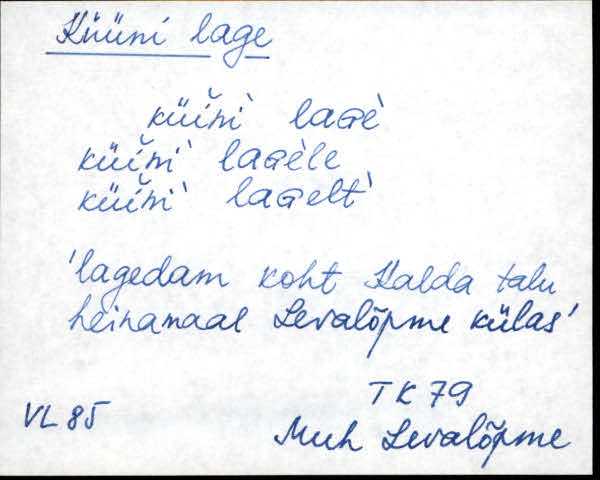 Küüni lage
küińì laɢè
küińì laɢèle
küińì laɢelt̀
'lagedam koht Kalda talu
heinamaal Levalõpme külas'
TK 79
VL 85
Muh Levalõpme